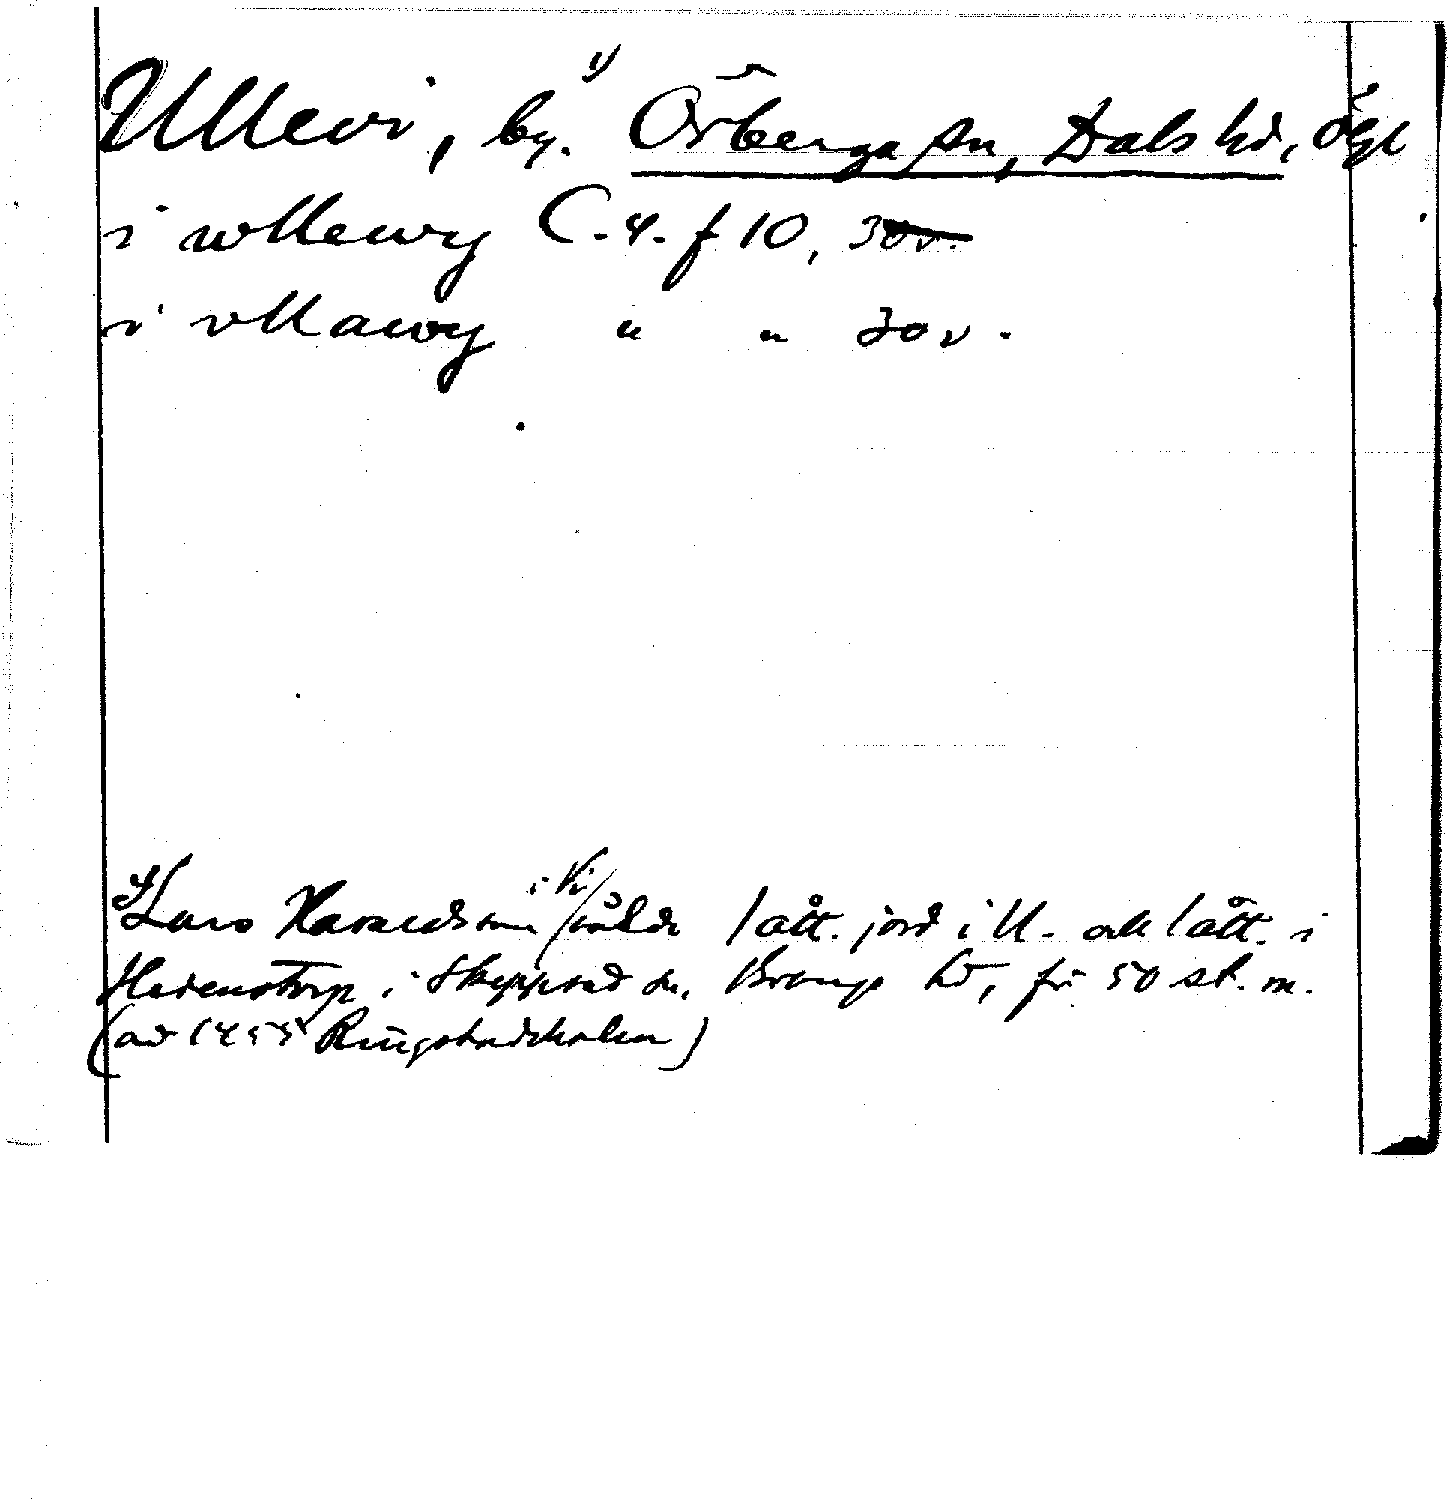 Ullevi, by. 1) Örberga sn, Dals hd, Ögl
i wllewy C. 4. f 10, 30v.
i vllawy " " 30v.
1) Lars Haraldsson i Vi sålde 1 att. jord i U. och 1 att. i
i Skeppsad sn, hd, för 50 st. m.
(ad 1455 Ringstadeholm)